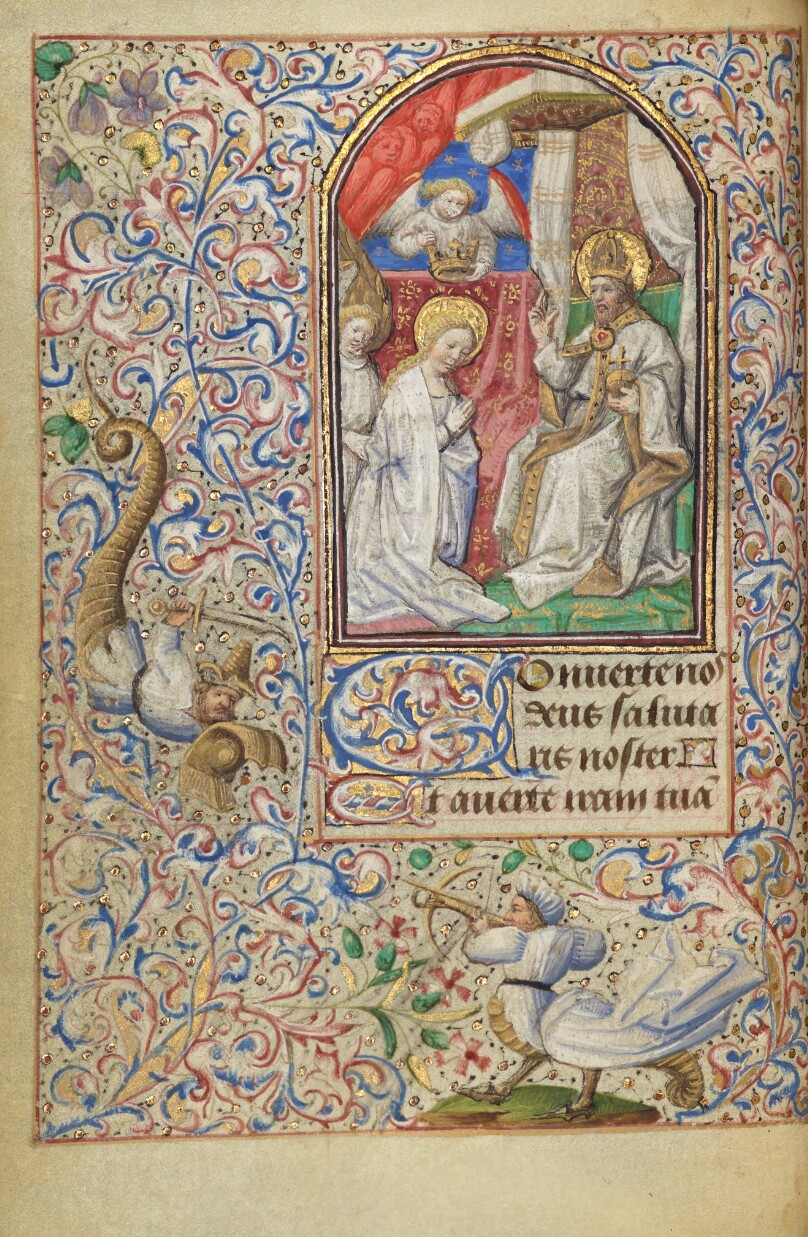 Conuerte nos
deus saluta
ris noster
Et auerte iram tuā